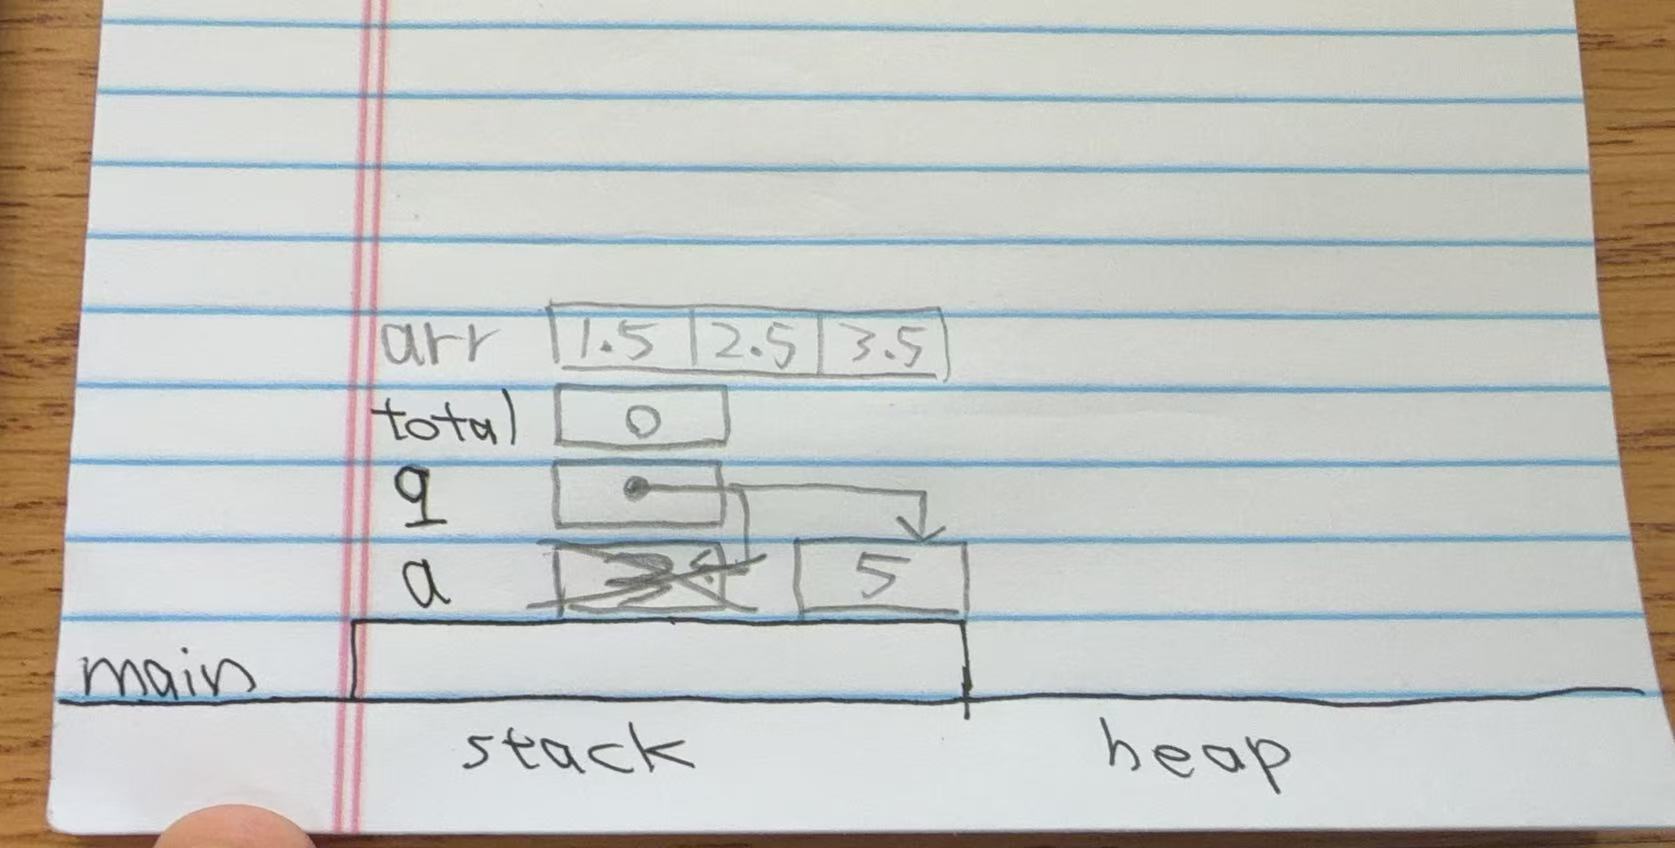 arr 1.5 2.5 3.5
total 0
q
a 5
main
stack heap